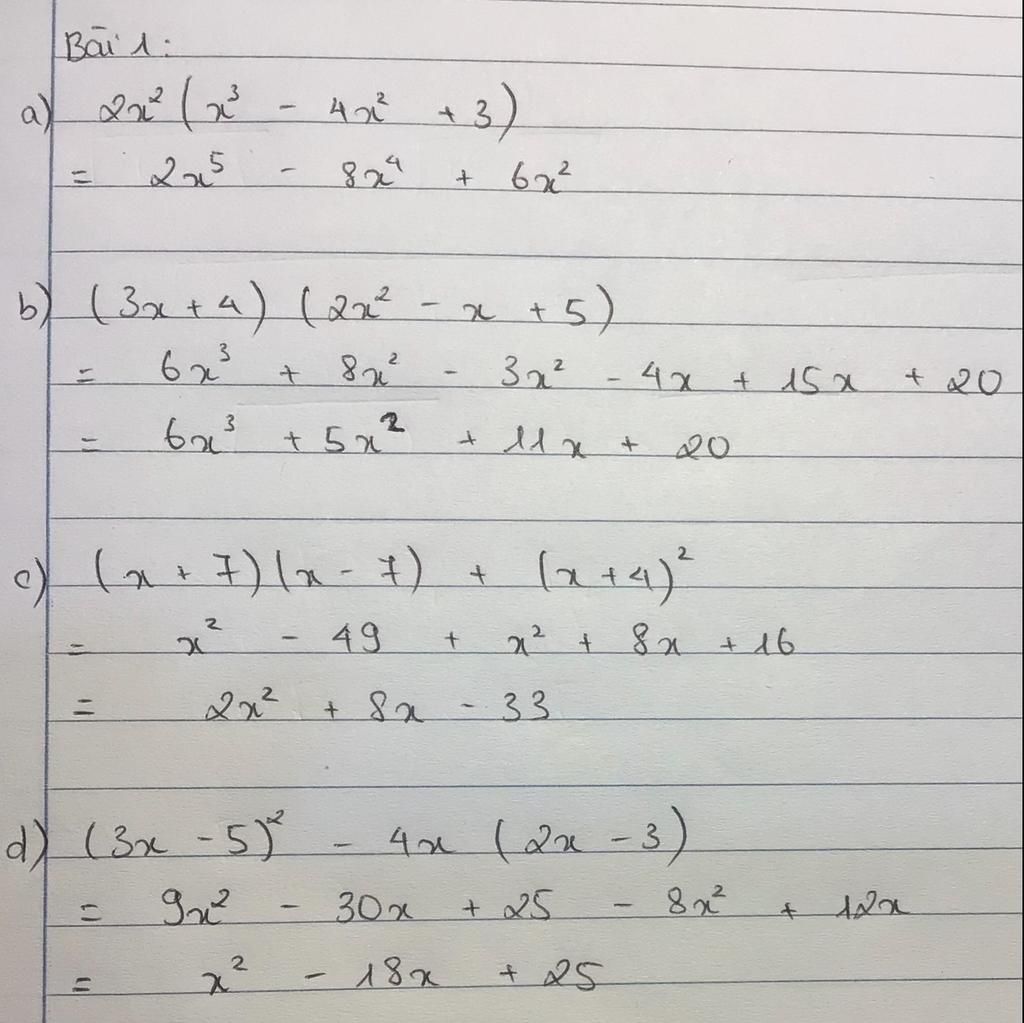 Bài 1:
a) 2x² (x³ - 4x² + 3)
= 2x⁵ - 8x⁴ + 6x²
b) (3x + 4) (2x² - x + 5)
= 6x³ + 8x² - 3x² - 4x + 15x + 20
= 6x³ + 5x² + 11x + 20
c) (x + 7)(x - 7) + (x + 4)²
= x² - 49 + x² + 8x + 16
= 2x² + 8x - 33
d) (3x - 5)² - 4x (2x - 3)
= 9x² - 30x + 25 - 8x² + 12x
= x² - 18x + 25